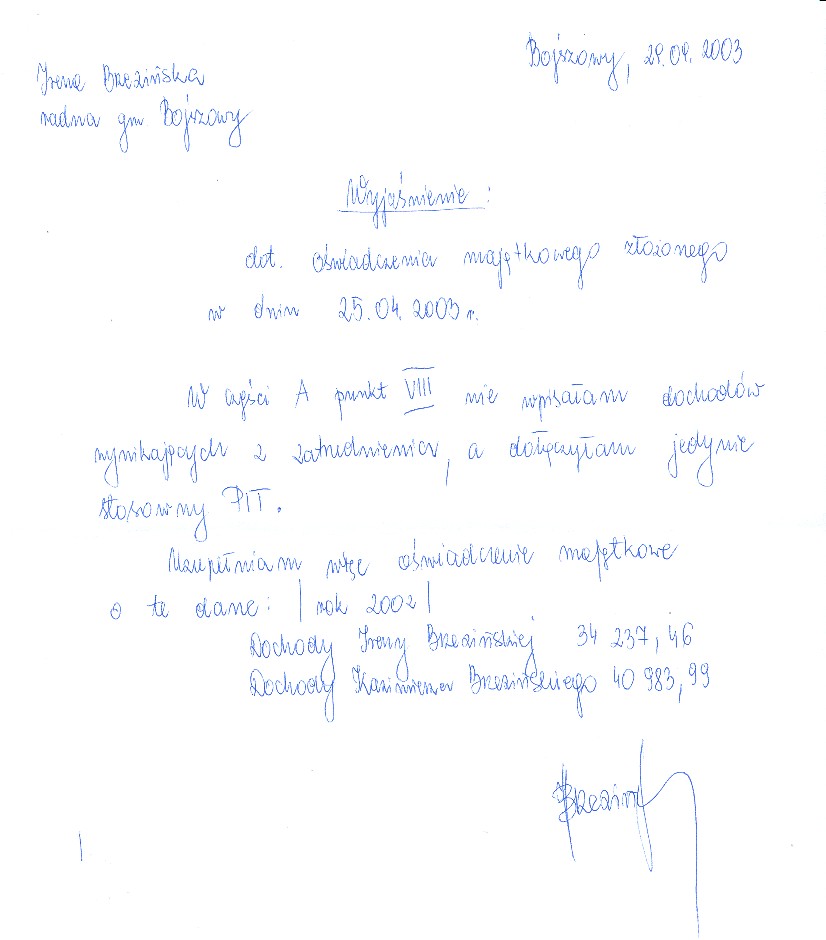 Bojszowy, 29.09.2003
Irena Brzezińska
radna gm Bojszowy
Wyjaśnienie :
dot. oświadczenia majątkowego złożonego
w dniu 25.04.2003 r.
W części A punkt VIII nie wpisałam dochodów
wynikających z zatrudnienia, a dołączyłam jedynie
stosowny PIT.
Uzupełniam więc oświadczenie majątkowe
o te dane: | rok 2002 |
Dochody Ireny Brzezińskiej 34 237,46
Dochody Kazimierza Brzezińskiego 40 983,99